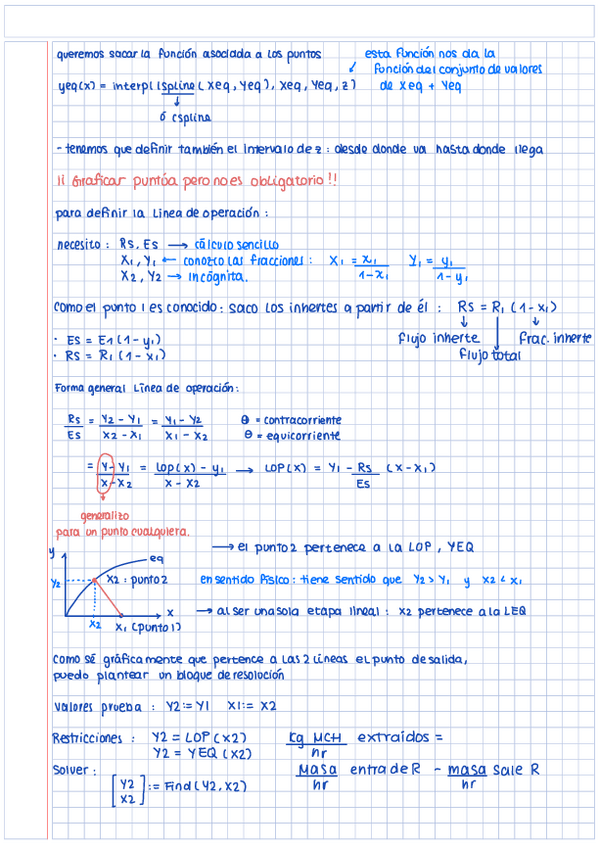 queremos sacar la función asociada a los puntos
esta función nos da la
función del conjunto de valores
de Xeq + Yeq
yeq(x) = interpl(spline(Xeq, Yeq), Xeq, Yeq, z)
ó cspline
- tenemos que definir también el intervalo de z : desde donde va hasta donde llega
¡¡ Graficar puntúa pero no es obligatorio !!
para definir la Linea de operación :
necesito : Rs, Es → cálculo sencillo
X₁, Y₁ ← conozco las fracciones : X₁ = x₁ / 1-x₁ Y₁ = y₁ / 1-y₁
X2, Y2 → Incógnita.
Como el punto 1 es conocido : saco los inhertes a partir de él : Rs = R₁ (1-x₁)
· Es = E1 (1-y₁)
· Rs = R₁ (1-x₁)
flujo inherte
frac. inherte
flujo total
Forma general Línea de operación:
Rs / Es = Y2 - Y₁ / X2 - X₁ = Y₁ - Y2 / X₁ - X2
⊕ = contracorriente
⊖ = equicorriente
= Y - Y₁ / X - X2 = LOP(x) - y₁ / X - X2 → LOP(X) = Y₁ - Rs / Es (X-X₁)
generalizo
para un punto cualquiera.
y
eq
Y2
X2 : punto 2
X
X2
X₁ (punto 1)
→ el punto 2 pertenece a la LOP, YEQ
en sentido físico : tiene sentido que Y2 > Y₁ y X2 < X₁
→ al ser una sola etapa lineal : X2 pertenece a la LEQ
Como sé gráficamente que pertence a las 2 líneas el punto de salida,
puedo plantear un bloque de resolución
Valores prueba : Y2 := Y1 X1 := X2
Restricciones : Y2 = LOP (X2)
Y2 = YEQ (X2)
Kg MCH / hr extraídos =
masa / hr entra de R - masa / hr sale R
Solver :
[Y2
X2] := Find (Y2, X2)